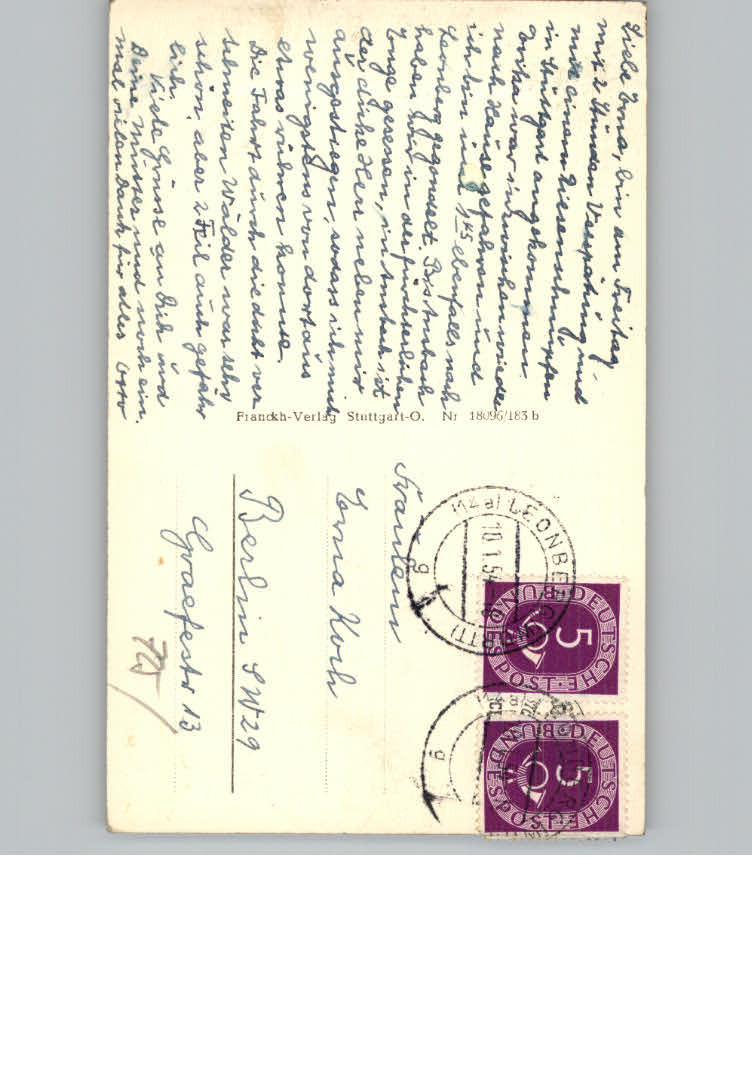 Liebe Erna, bin am Freitag
mit 2 Stunden Verspätung und
mit einem Riesenschnupfen
in Stuttgart angekommen.
Gorika war inzwischen wieder
nach Hause gefahren und
ich bin um 1/4 5 ebenfalls nach
Leonberg gegondelt. Bis Ansbach
haben wir in der fürchterlichen
Enge gesessen, in Ansbach ist
der dicke Herr neben mir
ausgestiegen, sodass ich mich
wenigstens von dort aus
etwas rühren konnte.
Die Fahrt durch die alt ver
schneiten Wälder war sehr
schön, aber z Teil auch gefähr
lich.
Viele Grüsse an Dich und
Deine Mutter und noch ein.
mal vielen Dank für alles Otto
Franckh-Verlag Stuttgart-O. Nr 18096/183 b
Fräulein
Erna Koch
Berlin SW 29
Graefestr 13
(14a) LEONBERG
(WÜRTT)
10.1.54
g
DEUTSCHE BUNDESPOST
5
DEUTSCHE BUNDESPOST
5
g